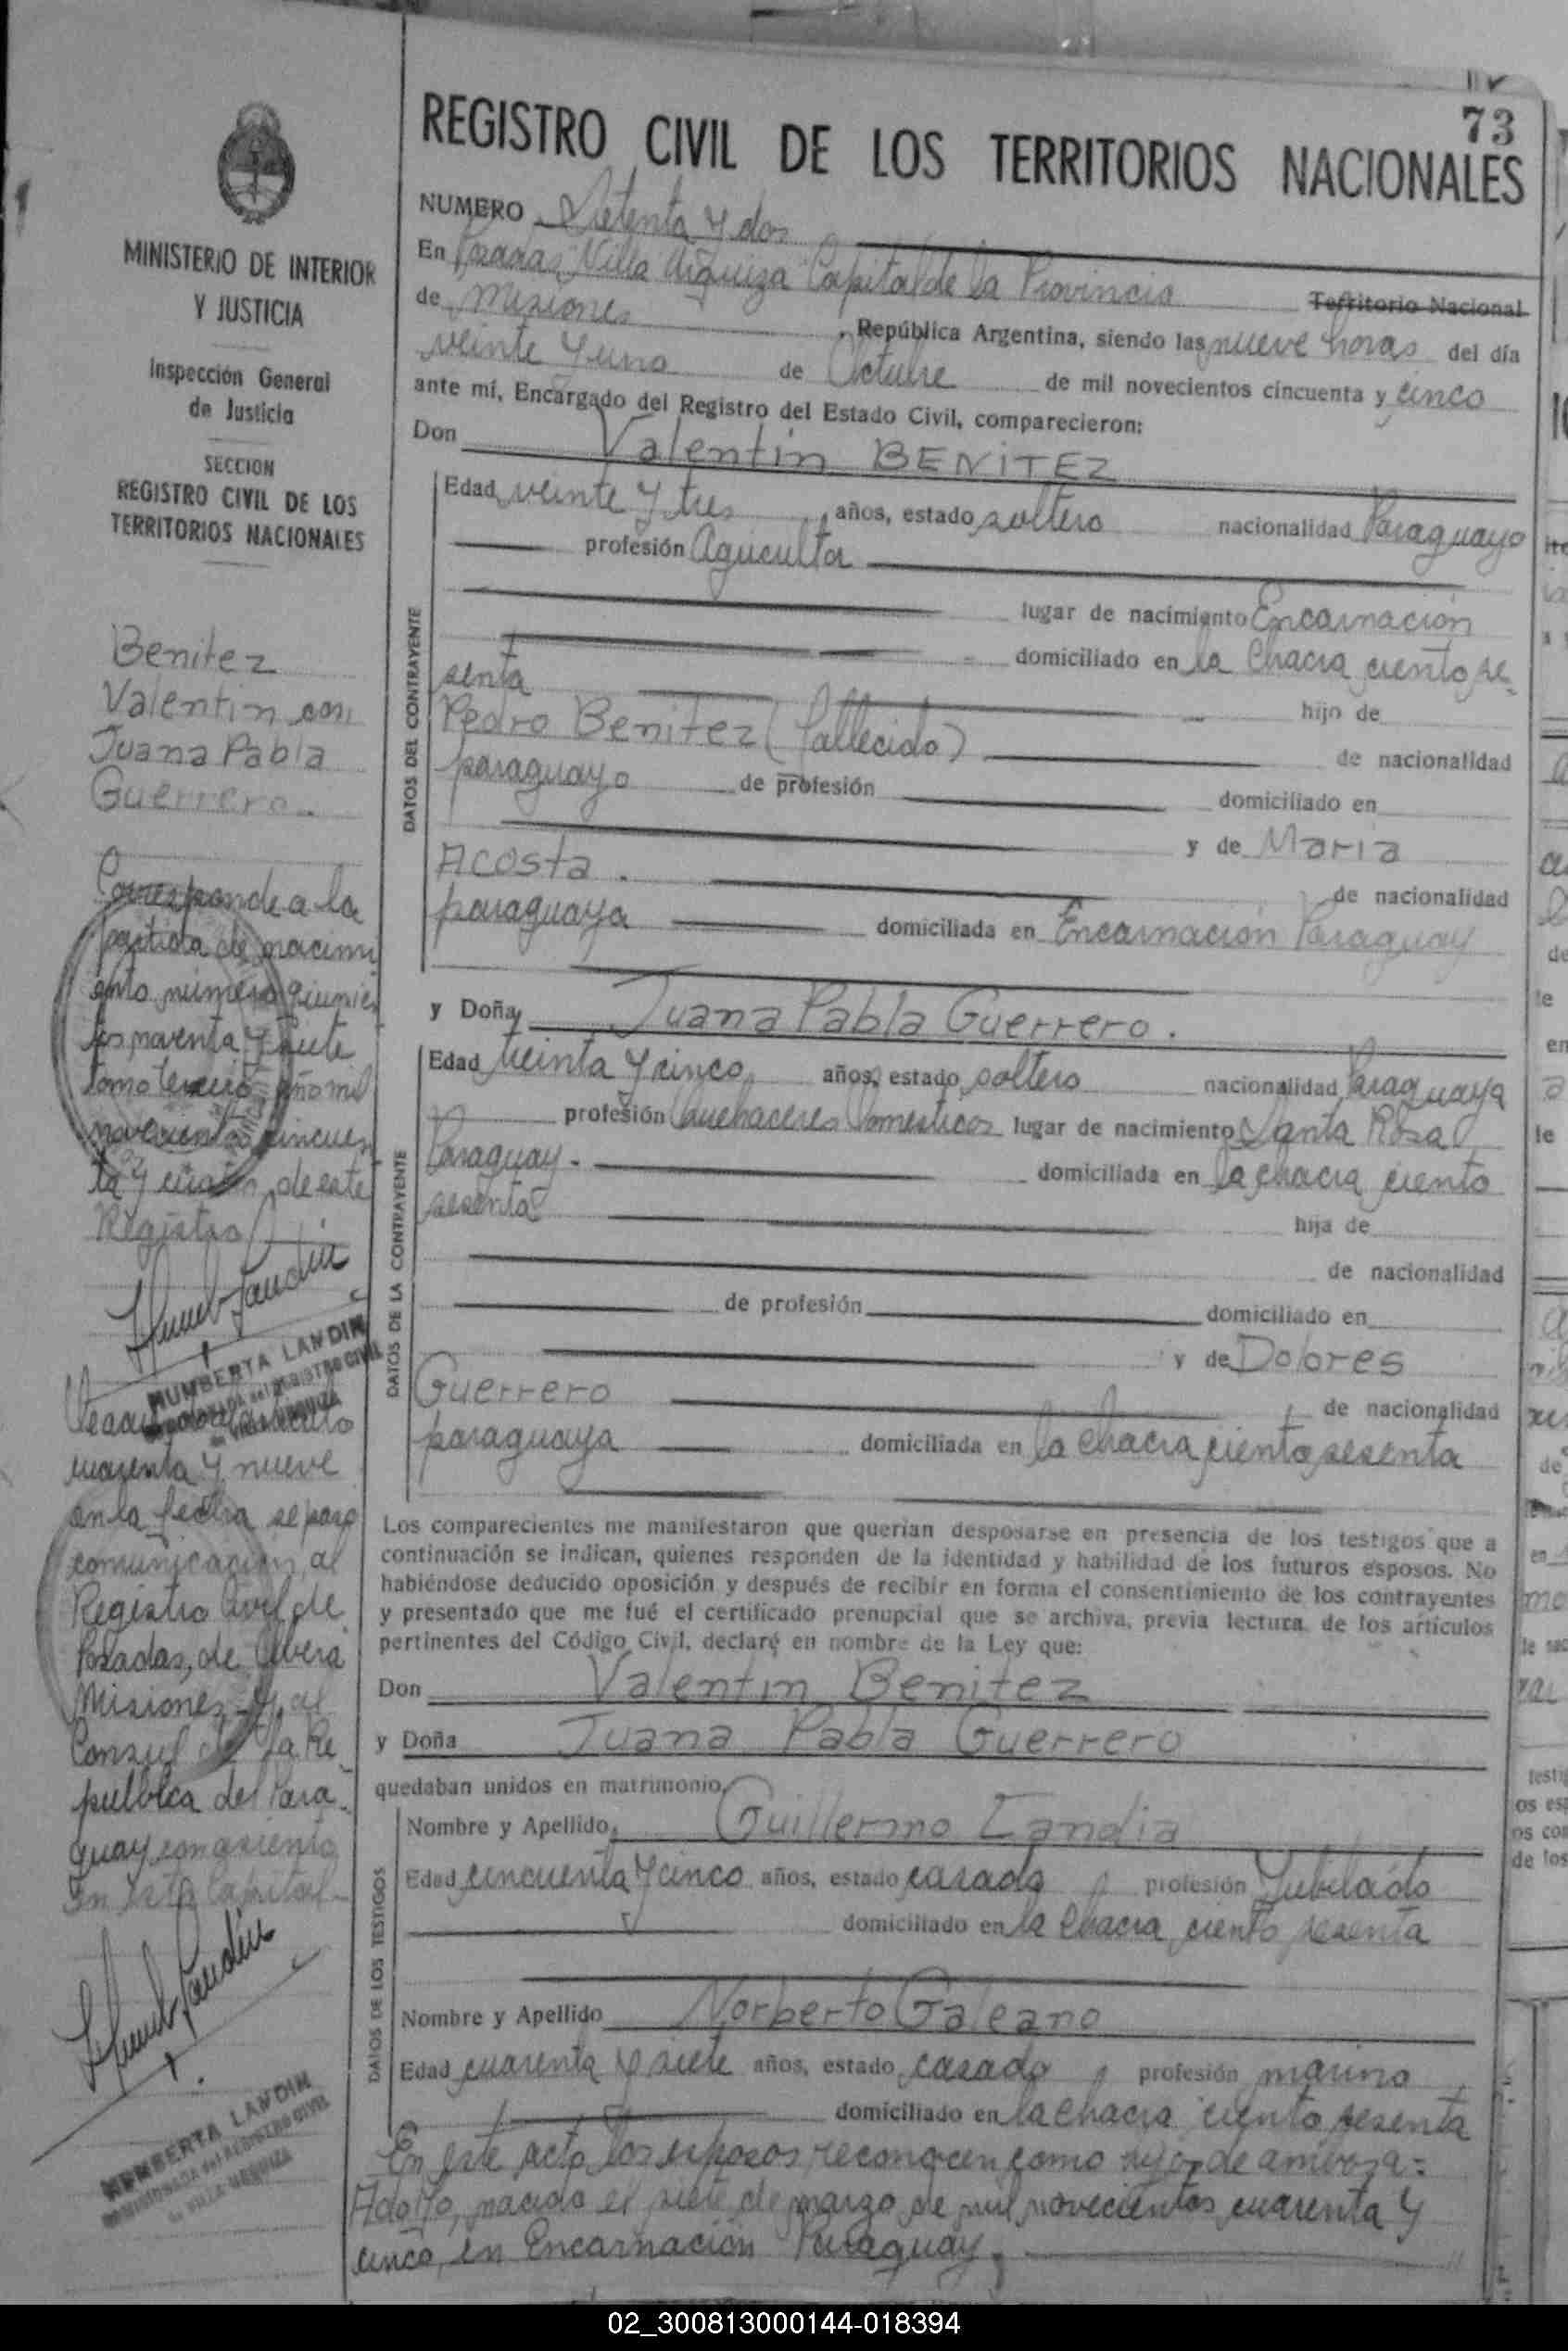 73
REGISTRO CIVIL DE LOS TERRITORIOS NACIONALES
MINISTERIO DE INTERIOR
Y JUSTICIA
Inspección General
de Justicia
SECCION
REGISTRO CIVIL DE LOS
TERRITORIOS NACIONALES
Benitez
Valentin con
Juana Pabla
Guerrero.
Corresponde a la
partida de nacimi
ento número quinien
tos noventa y siete
tomo tercero año mil
novecientos cincuen
ta y cuatro de este
Registro
HUMBERTA LANDIN
ENCARGADA del REGISTRO CIVIL
de VILLA URQUIZA
cuarenta y nueve
en la fecha se pasó
comunicación al
Registro Civil de
Posadas, de Oberá
Misiones y al
Consul de la Re
publica del Para
guay con asiento
en esta Capital
HUMBERTA LANDIN
ENCARGADA del REGISTRO CIVIL
de VILLA URQUIZA
NUMERO Setenta y dos
En Posadas Villa Urquiza Capital de la Provincia Territorio Nacional
de Misiones, República Argentina, siendo las nueve horas del día
veinte y uno de Octubre de mil novecientos cincuenta y cinco
ante mí, Encargado del Registro del Estado Civil, comparecieron:
Don Valentin BENITEZ
DATOS DEL CONTRAYENTE
Edad veinte y tres años, estado soltero nacionalidad Paraguayo
profesión Agricultor
lugar de nacimiento Encarnación
domiciliado en la Chacra ciento se
senta hijo de
Pedro Benitez (fallecido) de nacionalidad
paraguayo de profesión domiciliado en
y de Maria
Acosta. de nacionalidad
paraguaya domiciliada en Encarnación Paraguay
y Doña Juana Pabla Guerrero.
DATOS DE LA CONTRAYENTE
Edad treinta y cinco años, estado soltero nacionalidad Paraguaya
profesión Quehaceres Domesticos lugar de nacimiento Santa Rosa
Paraguay.- domiciliada en la chacra ciento
sesenta hija de
de nacionalidad
de profesión domiciliado en
y de Dolores
Guerrero de nacionalidad
paraguaya domiciliada en la chacra ciento sesenta
Los comparecientes me manifestaron que querían desposarse en presencia de los testigos que a
continuación se indican, quienes responden de la identidad y habilidad de los futuros esposos. No
habiéndose deducido oposición y después de recibir en forma el consentimiento de los contrayentes
y presentado que me fué el certificado prenupcial que se archiva, previa lectura de los artículos
pertinentes del Código Civil, declaré en nombre de la Ley que:
Don Valentin Benitez
y Doña Juana Pabla Guerrero
quedaban unidos en matrimonio.
DATOS DE LOS TESTIGOS
Nombre y Apellido, Guillermo Candia
Edad cincuenta y cinco años, estado casado profesión Jubilado
domiciliado en la Chacra ciento sesenta
Nombre y Apellido Norberto Galeano
Edad cuarenta y siete años, estado casado profesión marino
domiciliado en la chacra ciento sesenta
En este acto los esposos reconocen como hijo de ambos a:
Adolfo, nacido el siete de marzo de mil novecientos cuarenta y
cinco, en Encarnación Paraguay,
02_300813000144-018394